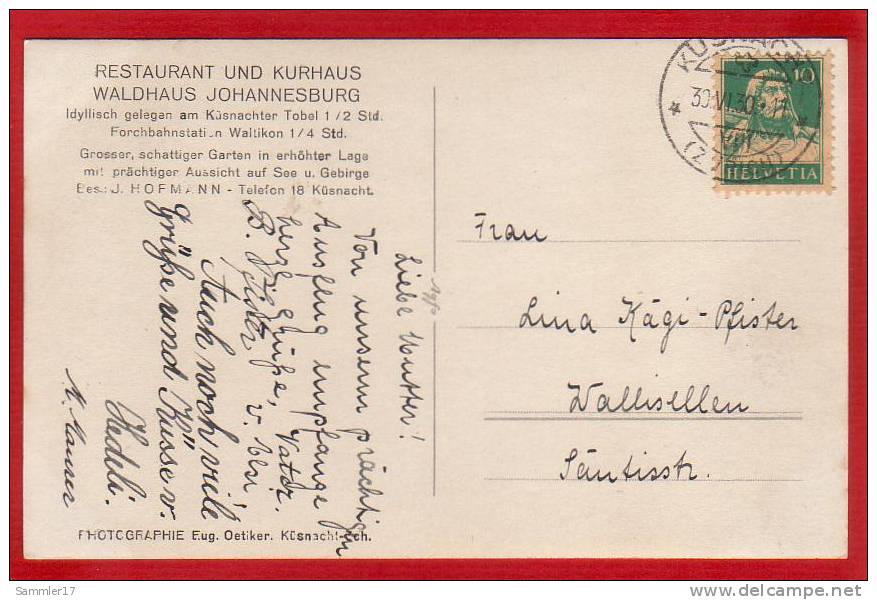 RESTAURANT UND KURHAUS
WALDHAUS JOHANNESBURG
Idyllisch gelegen am Küsnachter Tobel 1/2 Std.
Forchbahnstation Waltikon 1/4 Std.
Grosser, schattiger Garten in erhöhter Lage
mit prächtiger Aussicht auf See u. Gebirge
Bes.: J. HOFMANN - Telefon 18 Küsnacht.
KÜSNACHT
30.VI.30 · 11
(ZÜRICH)
10
HELVETIA
Frau
Lina Kägi-Pfister
Wallisellen
Säntisstr.
Liebe Mutter!
Von unserm prächtigen
Ausflug empfange
herzl. Grüße, Vater.
B. v. Elsi
Auch noch viele
Grüße und Küsse v.
Hedeli.
PHOTOGRAPHIE Eug. Oetiker. Küsnacht-Zch.
Sammler17
www.delcampe.net